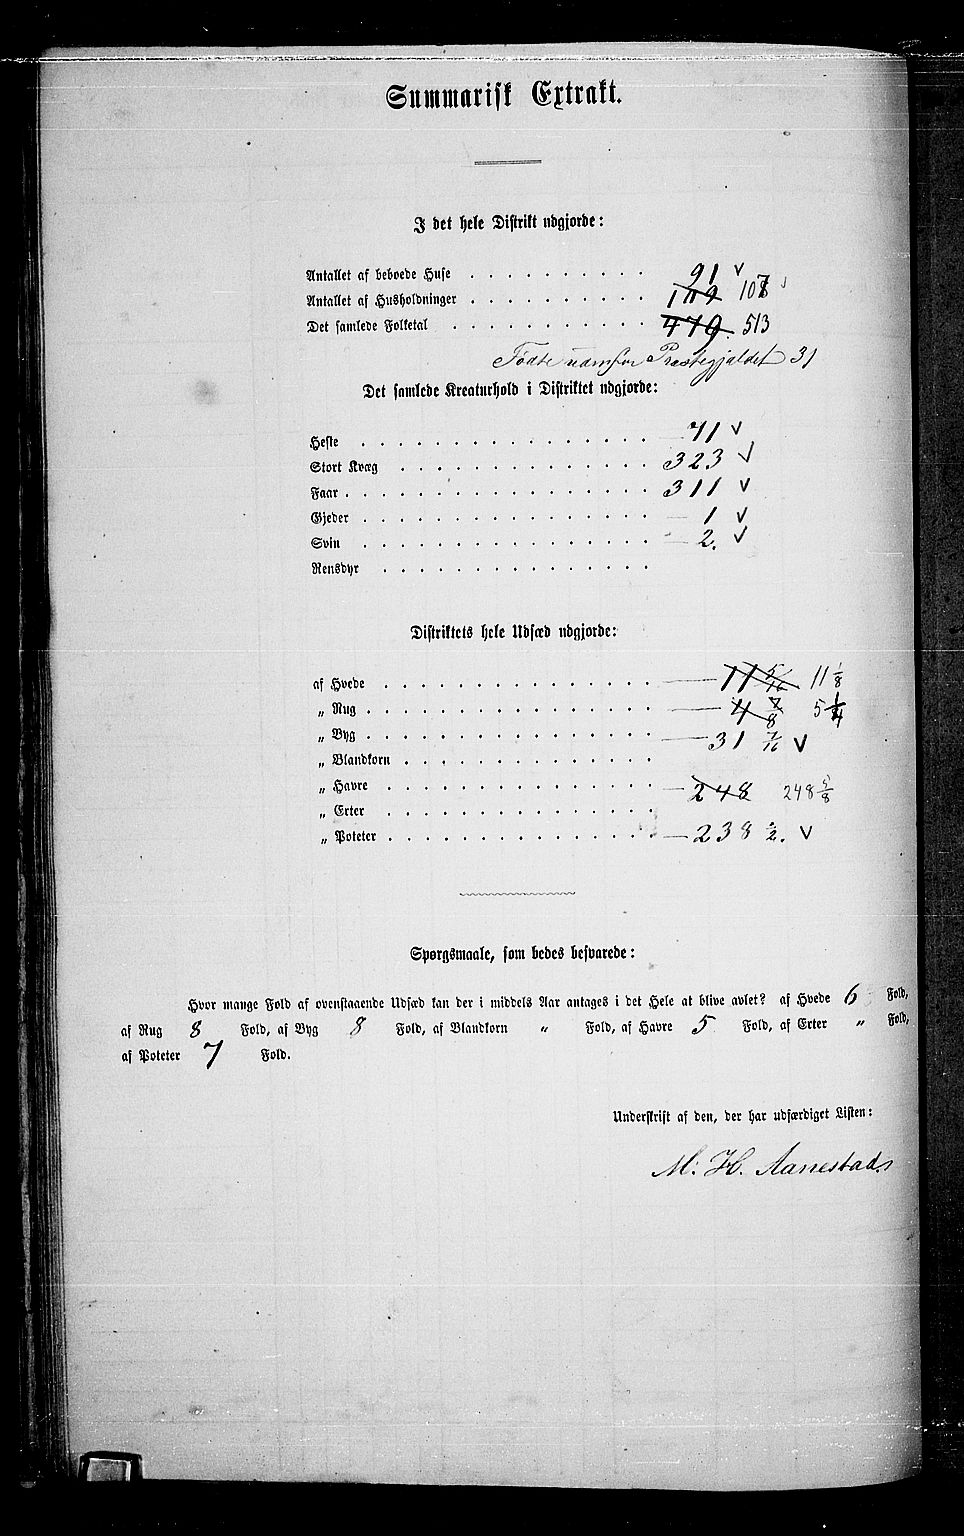 Summarisk Extrakt.
I det hele Distrikt udgjorde:
Antallet af beboede Huse . . . . . . . . . 91 v
Antallet af Husholdninger . . . . . . . . . 109 107
Det samlede Folketal . . . . . . . . . . 479. 513
Fødte udenfor Præstegjældet 31
Det samlede Kreaturhold i Distriktet udgjorde:
Heste . . . . . . . . . . . . . . 71 v
Stort Kvæg . . . . . . . . . . . . 323 v
Faar . . . . . . . . . . . . . . . 311 v
Gjeder . . . . . . . . . . . . . . 1 v
Svin . . . . . . . . . . . . . . 2. v
Rensdyr . . . . . . . . . . . . .
Distriktets hele Udsæd udgjorde:
af Hvede . . . . . . . . . . . . 11 5/16 11 1/8
„ Rug . . . . . . . . . . . . . 4 7/8 5 1/4
„ Byg . . . . . . . . . . . . . 31 7/16 v
„ Blandkorn . . . . . . . . . . .
„ Havre . . . . . . . . . . . . 248 248 5/8
„ Erter . . . . . . . . . . . .
„ Poteter . . . . . . . . . . . . 238 /2. v
Spørgsmaale, som bedes besvarede:
Hvor mange Fold af ovenstaaende Udsæd kan der i middels Aar antages i det Hele at blive avlet? af Hvede 6 Fold,
af Rug 8 Fold, af Byg 8 Fold, af Blandkorn „ Fold, af Havre 5 Fold, af Erter „ Fold,
af Poteter 7 Fold.
Underskrift af den, der har udfærdiget Listen:
M. H. Aanestad